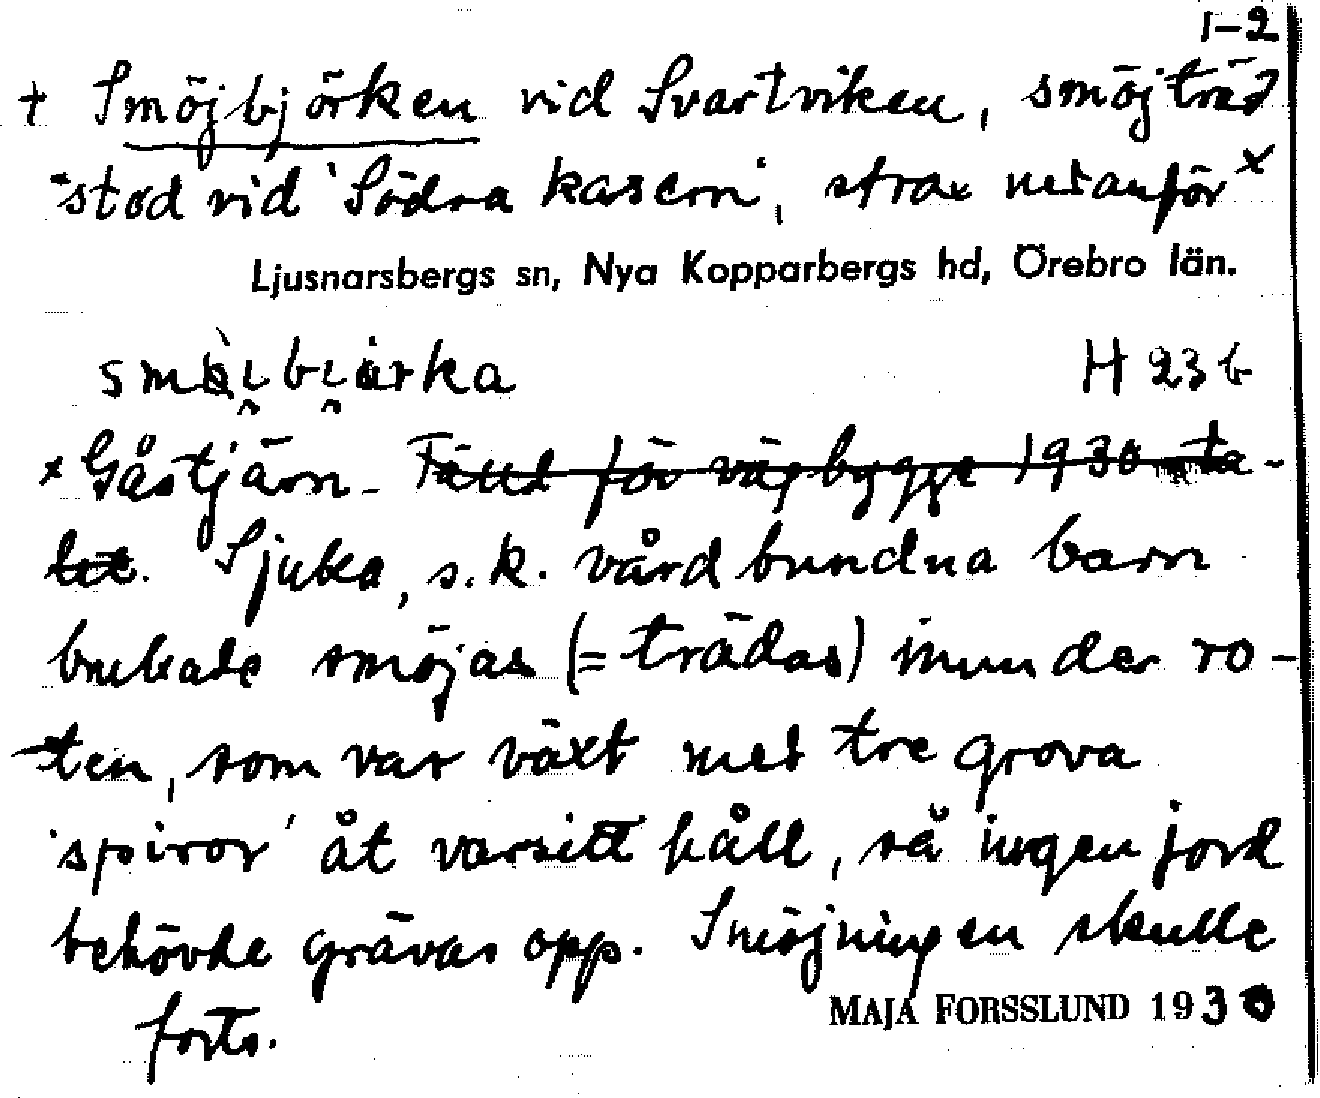 1-2
+ Smöjbjörken vid Svartviken, smöjträd
stod vid 'Södra kasern', strax nedanför x
Ljusnarsbergs sn, Nya Kopparbergs hd, Örebro län.
H 23 b
x Gåstjärn. Fälld för vägbygge 1930-ta-
let. Sjuka, s.k. vårdbundna barn
brukade smöjas (= trädas) inunder ro-
ten, som var växt med tre grova
'spiror' åt varsitt håll, så ingen jord
behövde grävas opp. Smöjningen skulle
forts.
MAJA FORSSLUND 1930